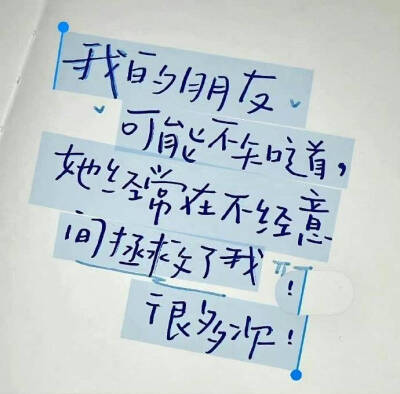 我的朋友
可能不知道，
她经常在不经意
间拯救了我 ㅠㅠ！
很多次！